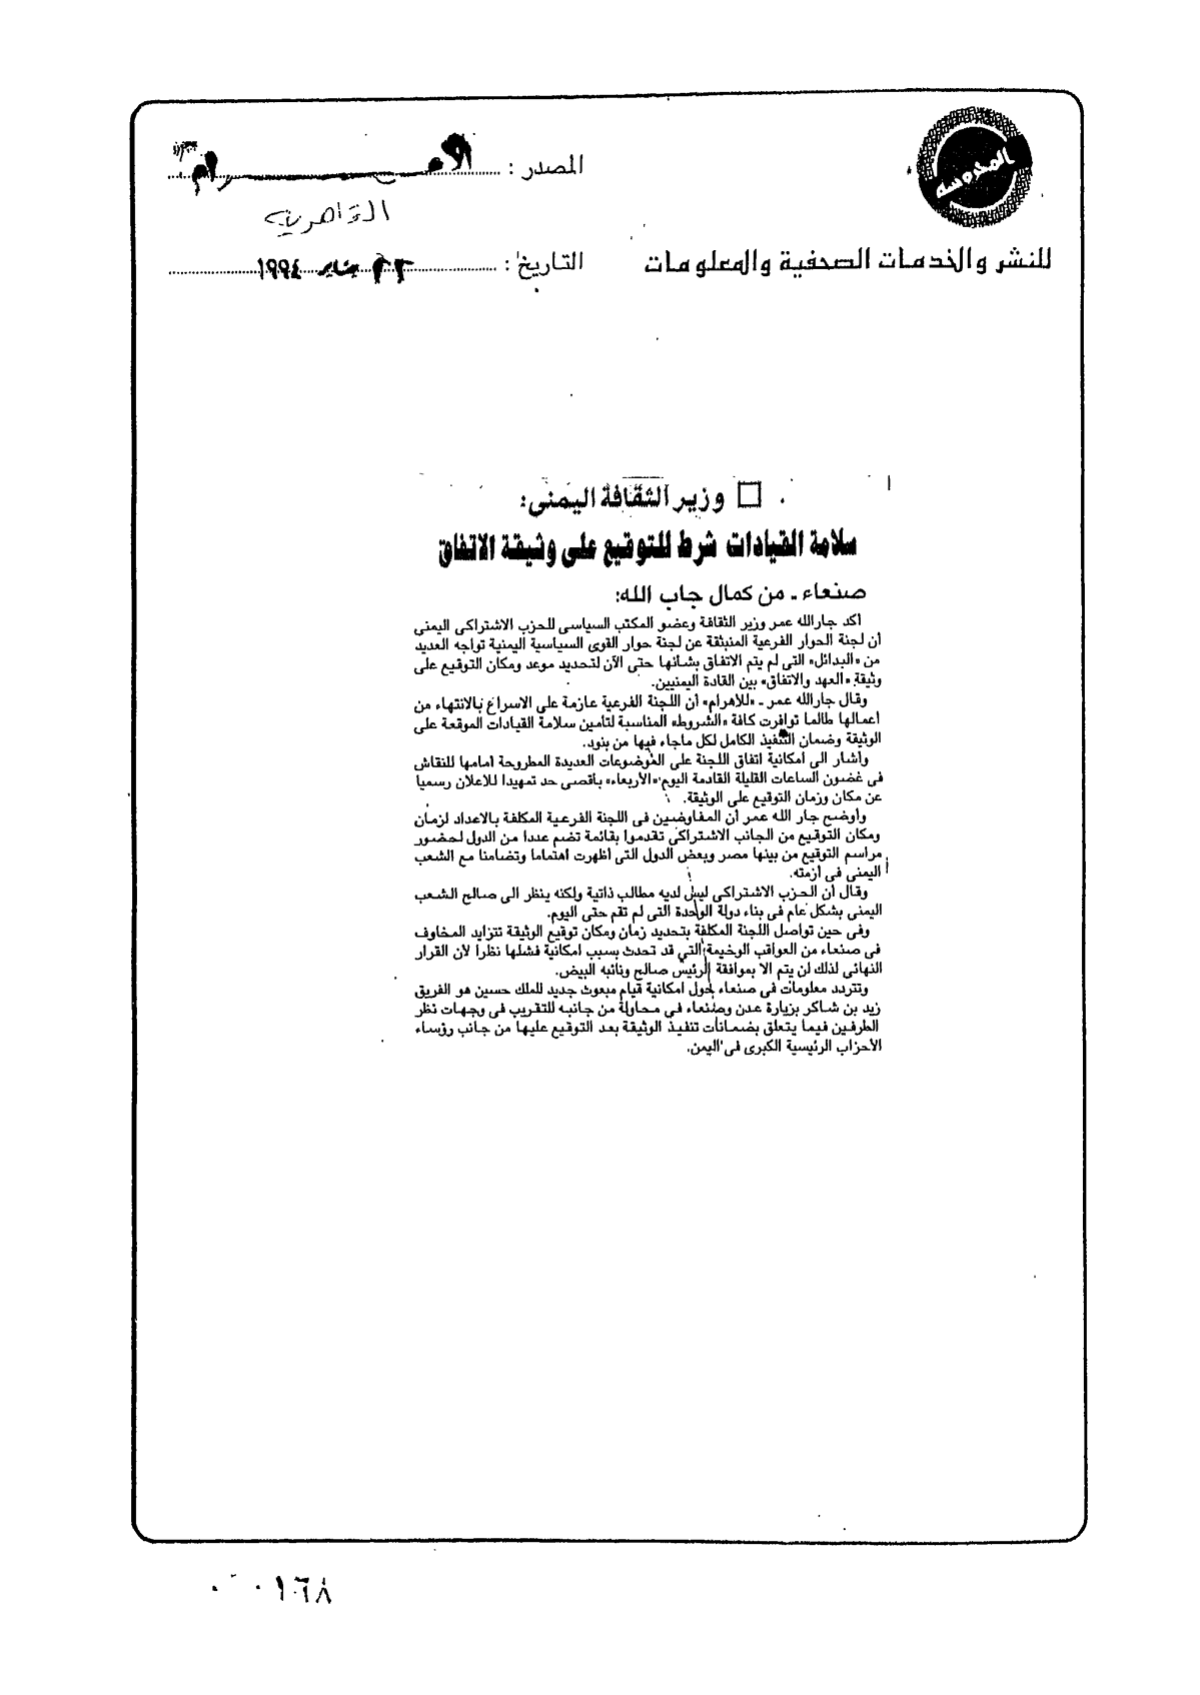 المحروسة
المصدر : الأهرام
القاهرية
للنشر والخدمات الصحفية والمعلومات
التاريخ : ٢٣ يناير ١٩٩٤
وزير الثقافة اليمنى:
سلامة القيادات شرط للتوقيع على وثيقة الاتفاق
صنعاء ـ من كمال جاب الله:
أكد جارالله عمر وزير الثقافة وعضو المكتب السياسى للحزب الاشتراكى اليمنى
أن لجنة الحوار الفرعية المنبثقة عن لجنة حوار القوى السياسية اليمنية تواجه العديد
من «البدائل» التى لم يتم الاتفاق بشأنها حتى الآن لتحديد موعد ومكان التوقيع على
وثيقة «العهد والاتفاق» بين القادة اليمنيين.
وقال جارالله عمر ـ «للاهرام» أن اللجنة الفرعية عازمة على الاسراع بالانتهاء من
أعمالها طالما توافرت كافة «الشروط» المناسبة لتأمين سلامة القيادات الموقعة على
الوثيقة وضمان التنفيذ الكامل لكل ماجاء فيها من بنود.
وأشار الى امكانية اتفاق اللجنة على الموضوعات العديدة المطروحة أمامها للنقاش
فى غضون الساعات القليلة القادمة اليوم «الأربعاء» بأقصى حد تمهيدا للاعلان رسميا
عن مكان وزمان التوقيع على الوثيقة.
وأوضح جار الله عمر أن المفاوضين فى اللجنة الفرعية المكلفة بالاعداد لزمان
ومكان التوقيع من الجانب الاشتراكى تقدموا بقائمة تضم عددا من الدول لحضور
مراسم التوقيع من بينها مصر وبعض الدول التى أظهرت اهتماما وتضامنا مع الشعب
اليمنى فى أزمته.
وقال أن الحزب الاشتراكى ليس لديه مطالب ذاتية ولكنه ينظر الى صالح الشعب
اليمنى بشكل عام فى بناء دولة الوحدة التى لم تقم حتى اليوم.
وفى حين تواصل اللجنة المكلفة بتحديد زمان ومكان توقيع الوثيقة تتزايد المخاوف
فى صنعاء من العواقب الوخيمة التى قد تحدث بسبب امكانية فشلها نظرا لأن القرار
النهائى لذلك لن يتم الا بموافقة الرئيس صالح ونائبه البيض.
وتتردد معلومات فى صنعاء حول امكانية قيام مبعوث جديد للملك حسين هو الفريق
زيد بن شاكر بزيارة عدن وصنعاء فى محاولة من جانبه للتقريب فى وجهات نظر
الطرفين فيما يتعلق بضمانات تنفيذ الوثيقة بعد التوقيع عليها من جانب رؤساء
الأحزاب الرئيسية الكبرى فى اليمن.
٠٠٠١٦٨